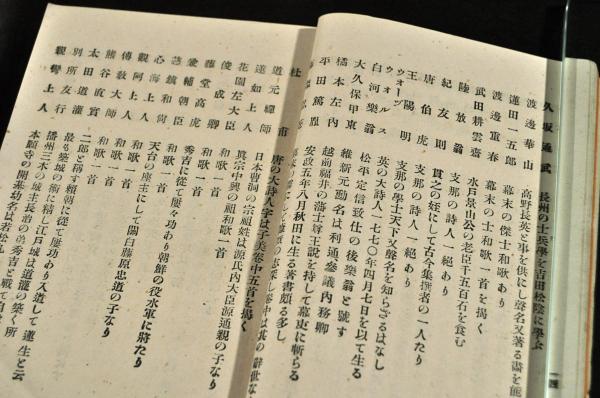 久坂通武 長州の士兵學を吉田松陰に學ぶ
渡邊華山 高野長英と事を供にし聲名又著る畵を能
蓮田一五郎 幕末の傑士和歌あり
渡邊重春 幕末の士和歌一首を揭く
武田耕雲齋 水戸景山公の老臣千五百石を食む
陸放翁 支那の詩人一絶あり
紀友則 貫之の姪にして古今集撰者の一人たり
唐伯虎 支那の詩人一絶あり
王陽明 支那の學士天下又聲名を知らざるはなし
ウォーヅウォルス 英の大詩人一七七〇年四月七日を以て生る
白河樂翁 松平定信致仕の後樂翁と號す
大久保甲東 維新元勳名は利通參議内務卿
橋本左内 越前福井の藩士尊王説を持して幕吏に斬らる
平田篤胤 安政五年八月秋田に生る著書頗る多し
杜甫 唐の大詩人字は子美卷中五首を揭く
道元禪師 日本曹洞の宗祖姓は源氏内大臣源通親の子なり
蓮如上人 眞宗中興の祖和歌一首
花園左大臣 和歌一首
俊成卿 和歌一首
藤堂高虎 秀吉に從て屢々功あり朝鮮の役水軍に將たり
愛輔朝臣 和歌一首
心海上人 和歌一首
觀阿上人 和歌一首
傳敎大師 天台の座主にして關白藤原忠道の子なり
熊谷直實 二郎と稱す賴朝に從て屢功あり入道して蓮生と云
太田道灌 最も築城の術に精し江戸城は道灌の築く所
別所友行 播州三木の城主長治の弟秀吉と戰て自
親鸞上人 本願寺の開基幼名は若松丸